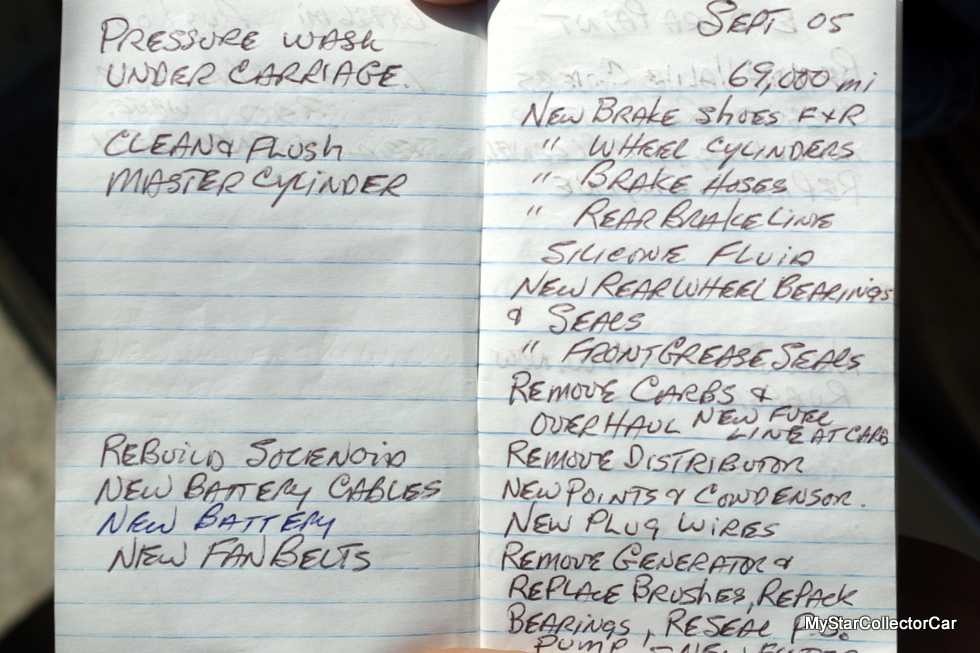 PRESSURE WASH
UNDER CARRIAGE.
CLEAN & FLUSH
MASTER CYLINDER
REBUILD SOLENOID
NEW BATTERY CABLES
NEW BATTERY
NEW FAN BELTS
SEPT 05
69,000 mi
NEW BRAKE SHOES F&R
" WHEEL CYLINDERS
" BRAKE HOSES
" REAR BRAKE LINE
SILICONE FLUID
NEW REAR WHEEL BEARINGS
& SEALS
" FRONT GREASE SEALS
REMOVE CARBS &
OVERHAUL NEW FUEL
LINE AT CARB
REMOVE DISTRIBUTOR
NEW POINTS & CONDENSOR.
NEW PLUG WIRES
REMOVE GENERATOR &
REPLACE BRUSHES, REPACK
BEARINGS, RESEAL P.S.
PUMP - NEW FILTER
MyStarCollectorCar